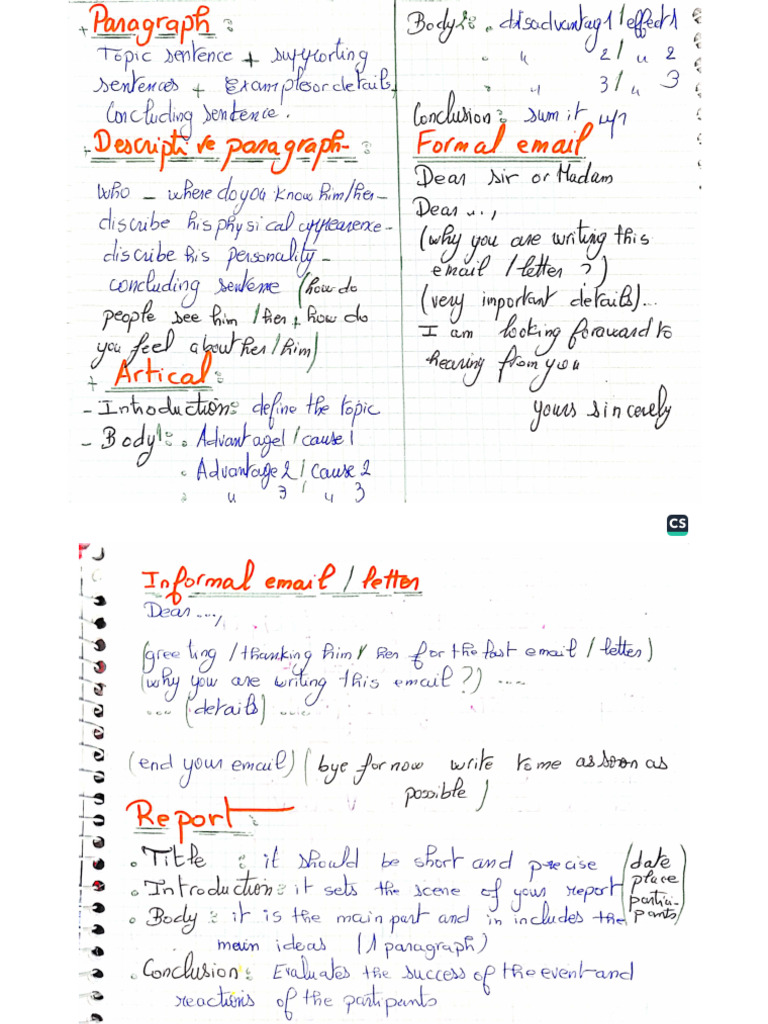 + Paragraph :
Topic sentence + supporting
sentences + Examples or details +
Concluding sentence.
+ Descriptive paragraph- :
who - where do you know him/her-
describe his physical appearence -
describe his personality -
concluding sentense (how do
people see him /her + how do
you feel about her/him)
+ Artical :
- Introduction: define the topic
- Body 1: • Advantage1/cause 1
• Advantage 2/cause 2
• " 3 / " 3
Body 2: • disadvantag1/effect1
• " 2 / " 2
• " 3 / " 3
Conclusion: sum it up
Formal email
Dear Sir or Madam
Dear ...,
(why you are writing this
email / letter ?)
(very important details)...
I am looking forward to
hearing from you
yours sincerely
CS
Informal email / letter
Dear ....,
(greeting /thanking him/ her for the last email / letter)
(why you are writing this email?) ....
.... (details) ....
(end your email) ( bye for now write to me as soon as
possible )
Report :
• Title : it should be short and precise (date
• Introduction: it sets the scene of your report place
• Body : it is the main part and in includes the partici-
pants)
main ideas (1 paragraph)
• Conclusion: Evaluates the success of the event and
reactions of the partipants